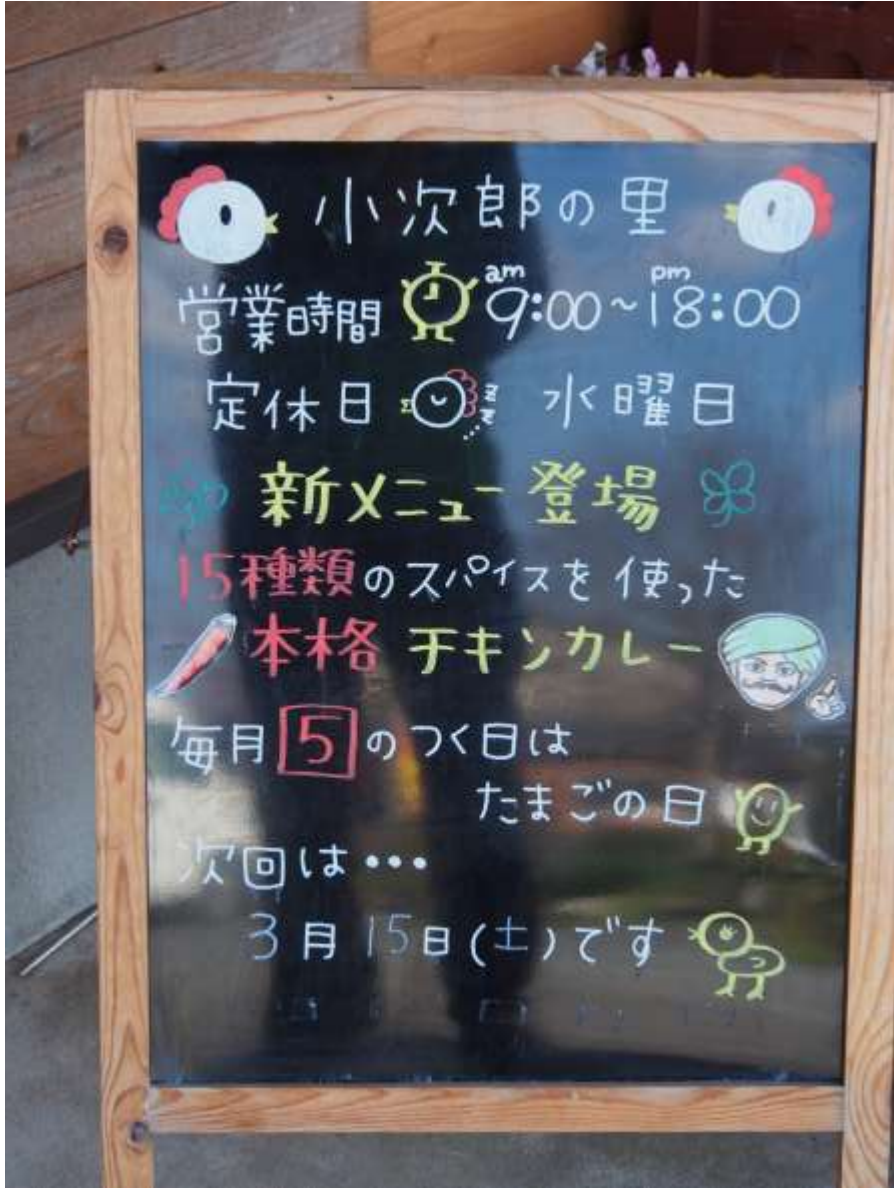 小次郎の里
営業時間 am 9:00～pm 18:00
定休日 zzz 水曜日
新メニュー登場
15種類のスパイスを使った
本格チキンカレー
毎月5のつく日は
たまごの日
次回は・・・
3月15日(土)です